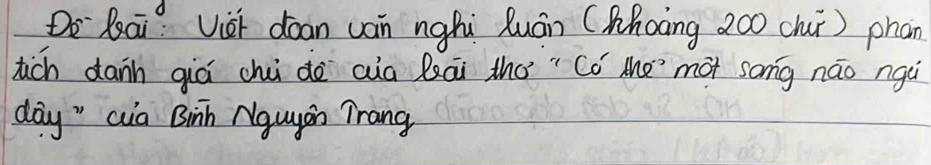 Đề bài: Viết đoạn văn nghị luận (khoảng 200 chữ) phân
tích đánh giá chủ đề của bài thơ "Có thể một sáng nào ngủ
dậy" của Bình Nguyên Trang